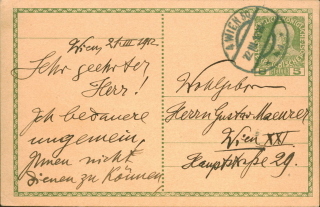 Wien, 21.III.1912
Sehr geehrter
Herr!
Ich bedauere
ungemein
Ihnen nicht
dienen zu können.
WIEN
5
Wohlgeboren
Herrn Gustav Maeurer
Wien XXI
Hauptstraße 29.